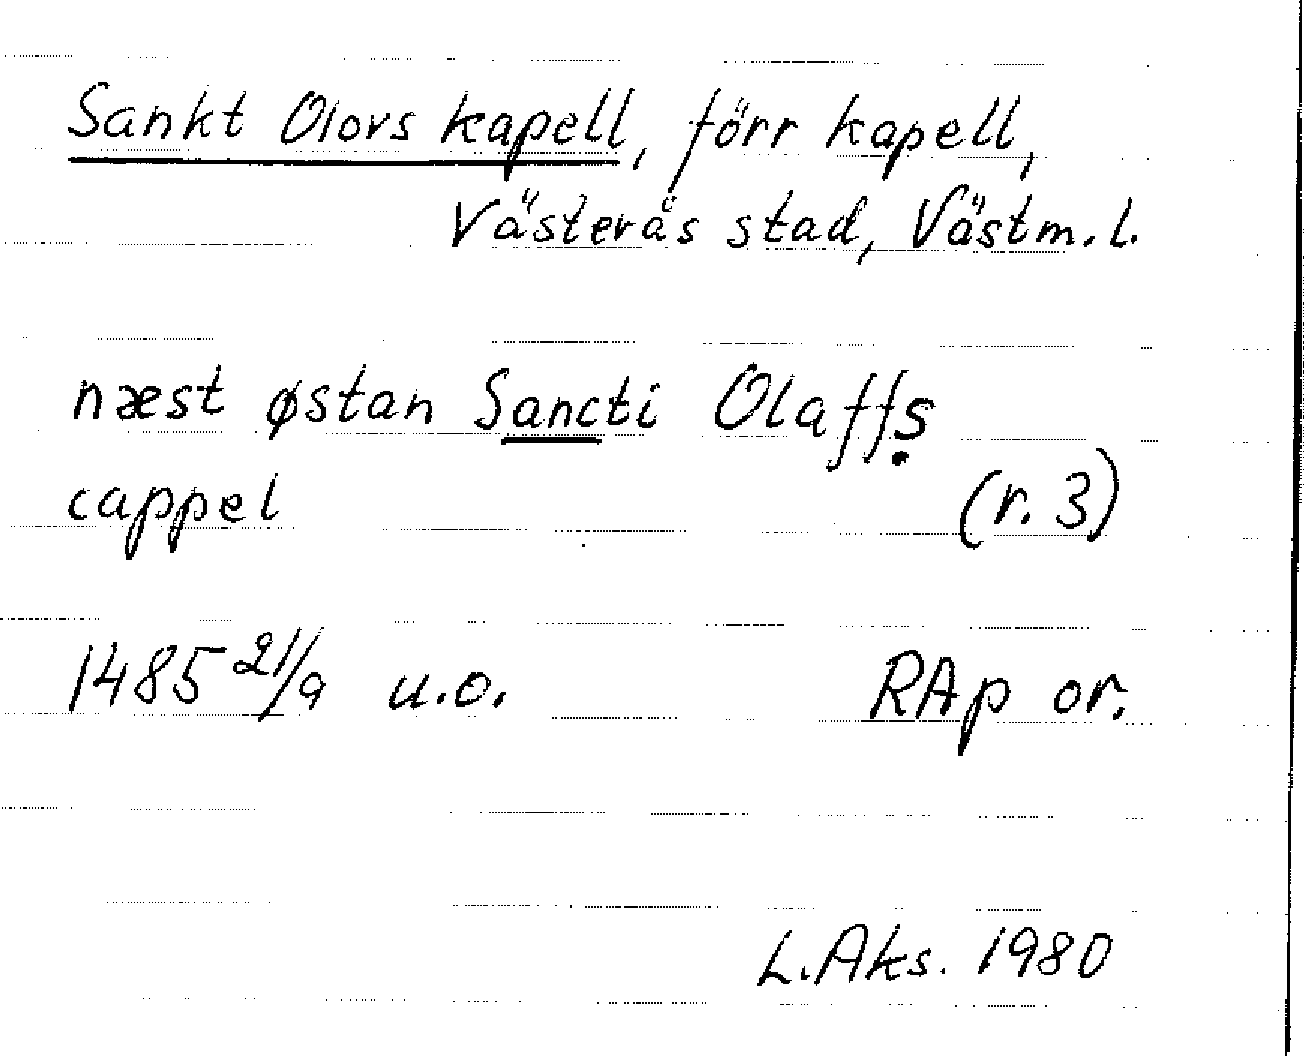 Sankt Olovs kapell, förr kapell,
Västerås stad, Västm. l.
næst østan Sancti Olaffs
cappel (r. 3)
1485 21/9 u.o. RAp or.
L.Aks. 1980